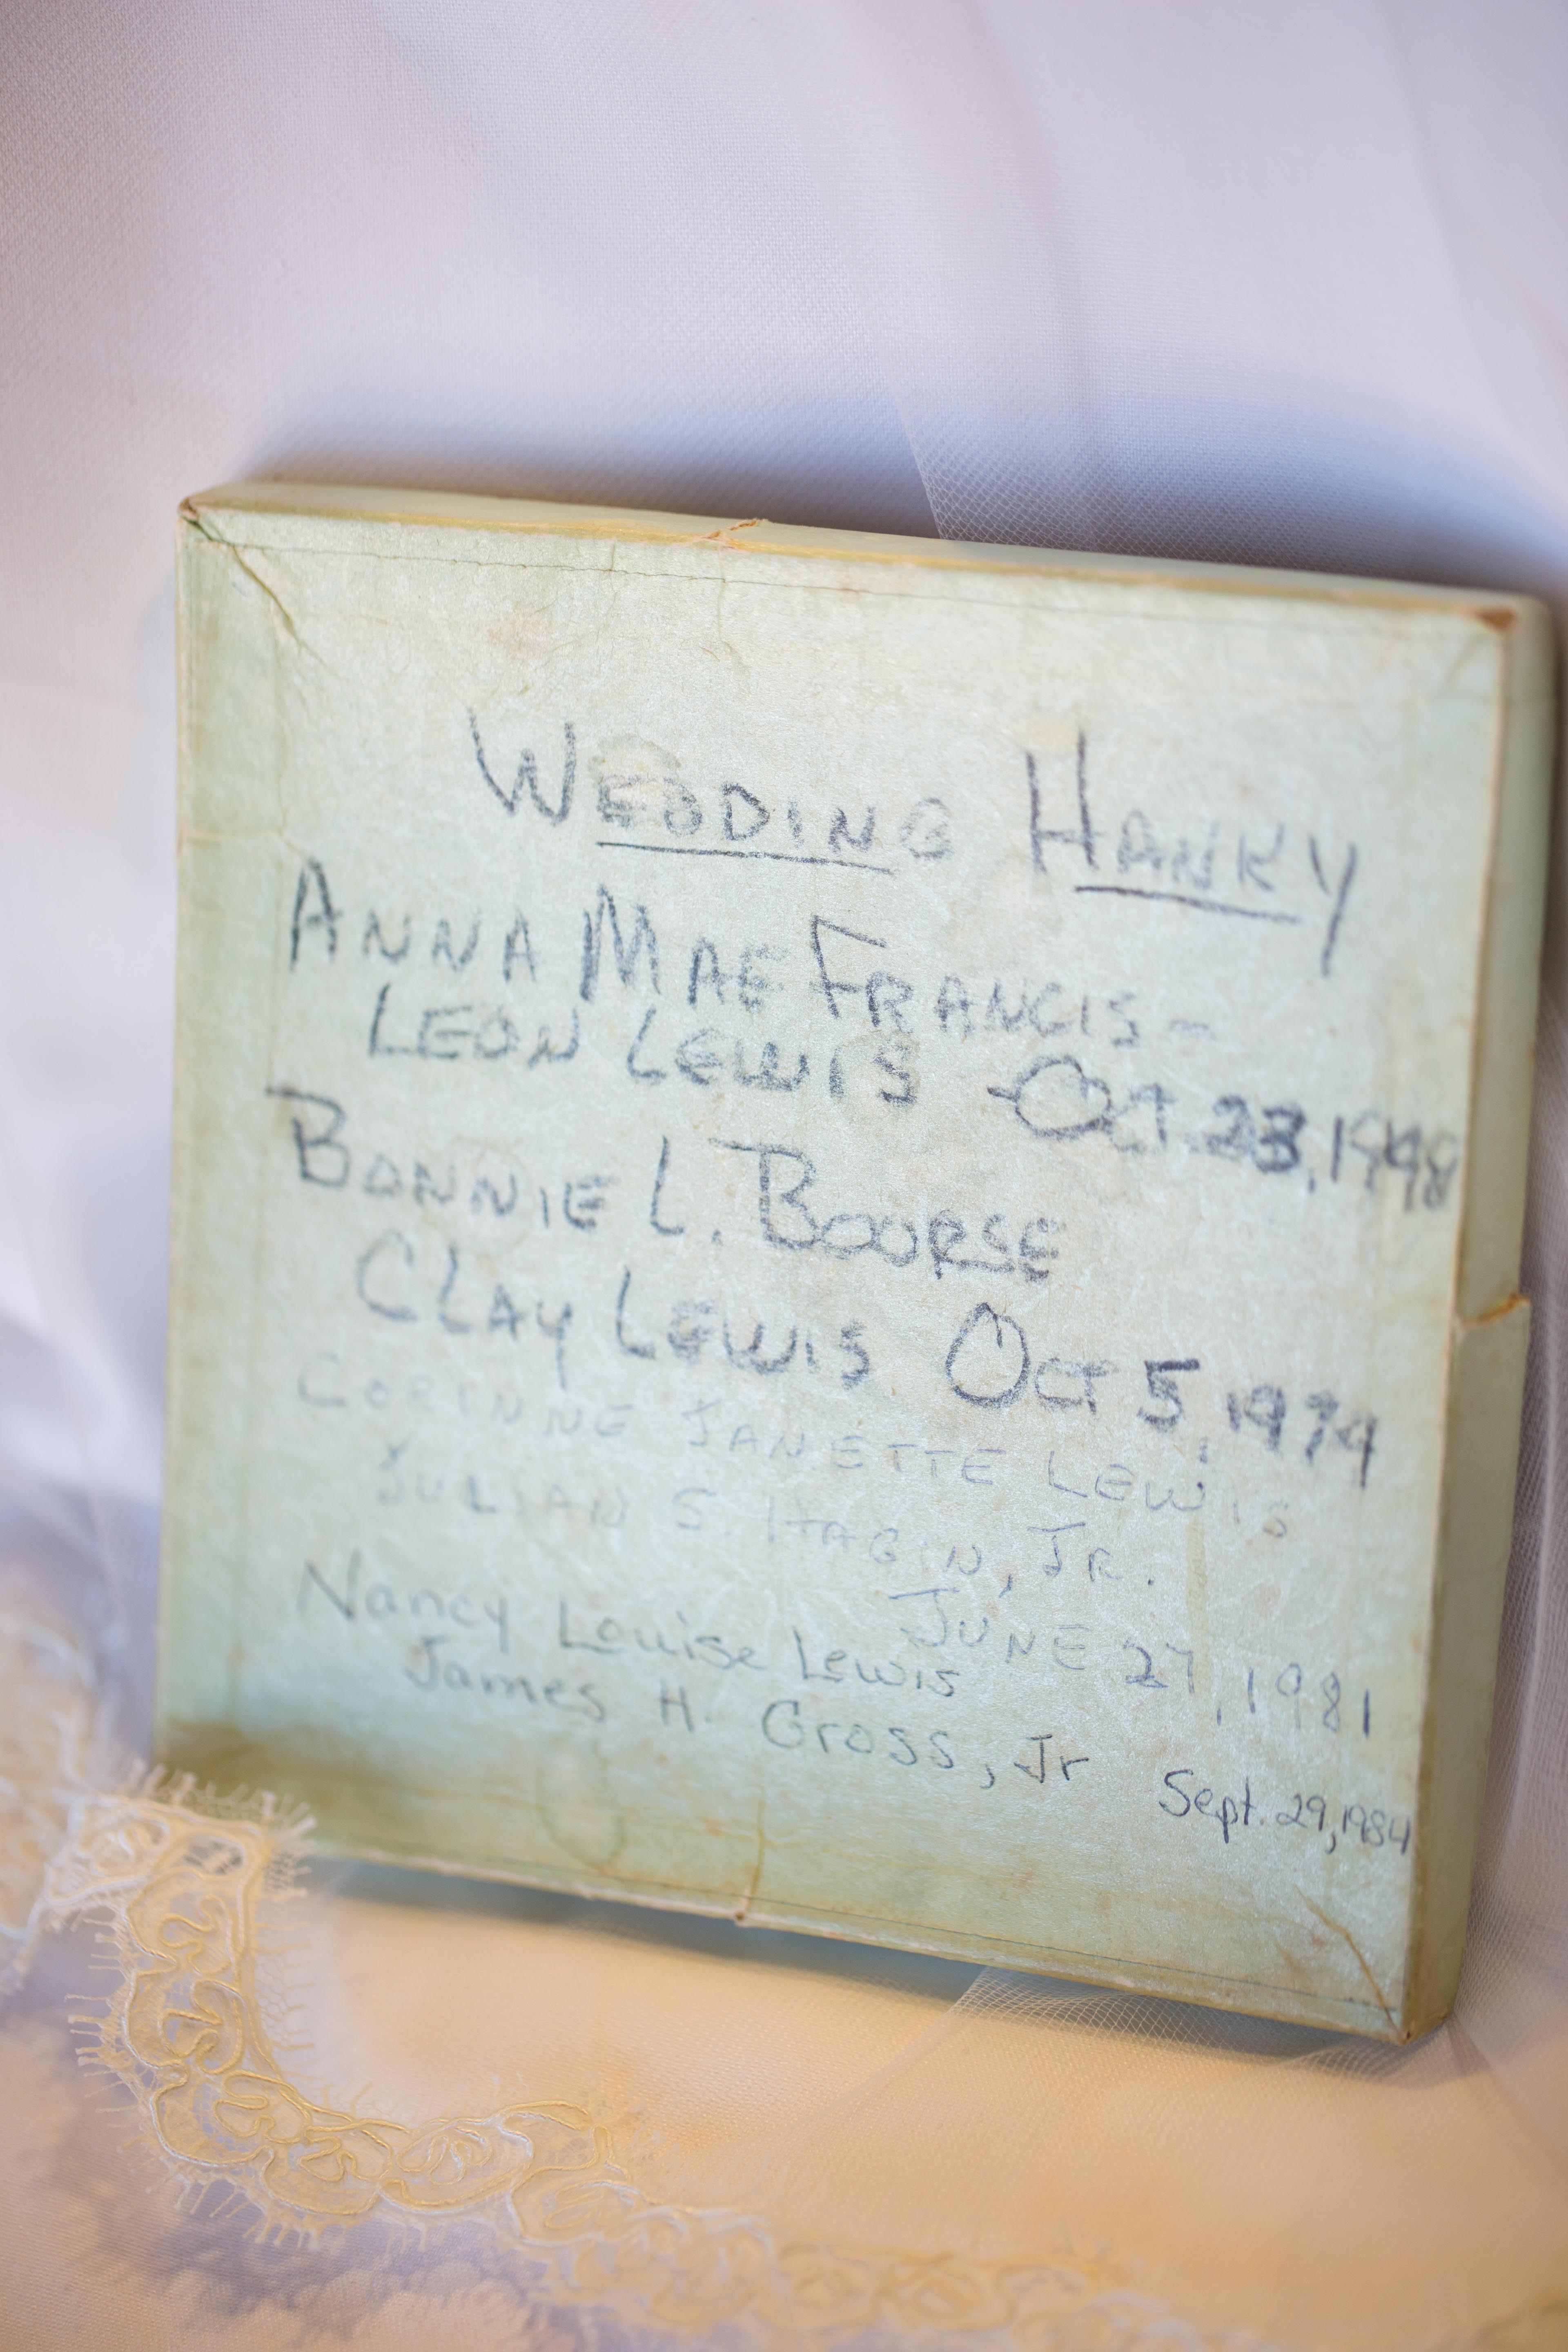 WEDDING HANKY
ANNA MAE FRANCIS-
LEON LEWIS - OCT. 23, 1948
BONNIE L. BOURSE
CLAY LEWIS OCT 5, 1974
CORINNE JANETTE LEWIS
JULIAN S. HAGIN, JR.
JUNE 27, 1981
Nancy Louise Lewis
James H. Gross, Jr
Sept. 29, 1984